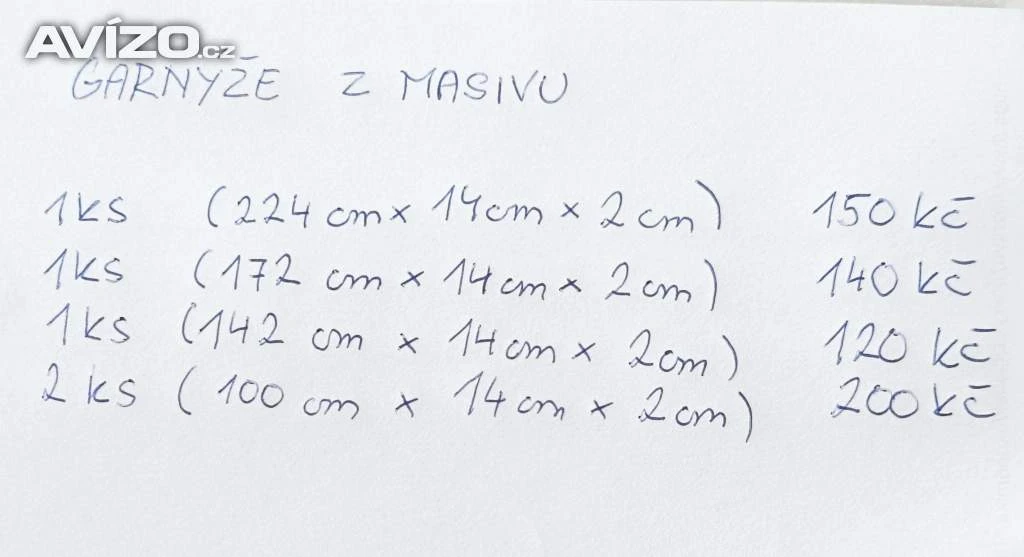 AVÍZO.cz
GARNYŽE Z MASIVU
1ks (224 cm x 14cm x 2cm) 150 kč
1ks (172 cm x 14cm x 2cm) 140 kč
1ks (142 cm x 14cm x 2cm) 120 kč
2 ks (100 cm x 14cm x 2cm) 200 kč